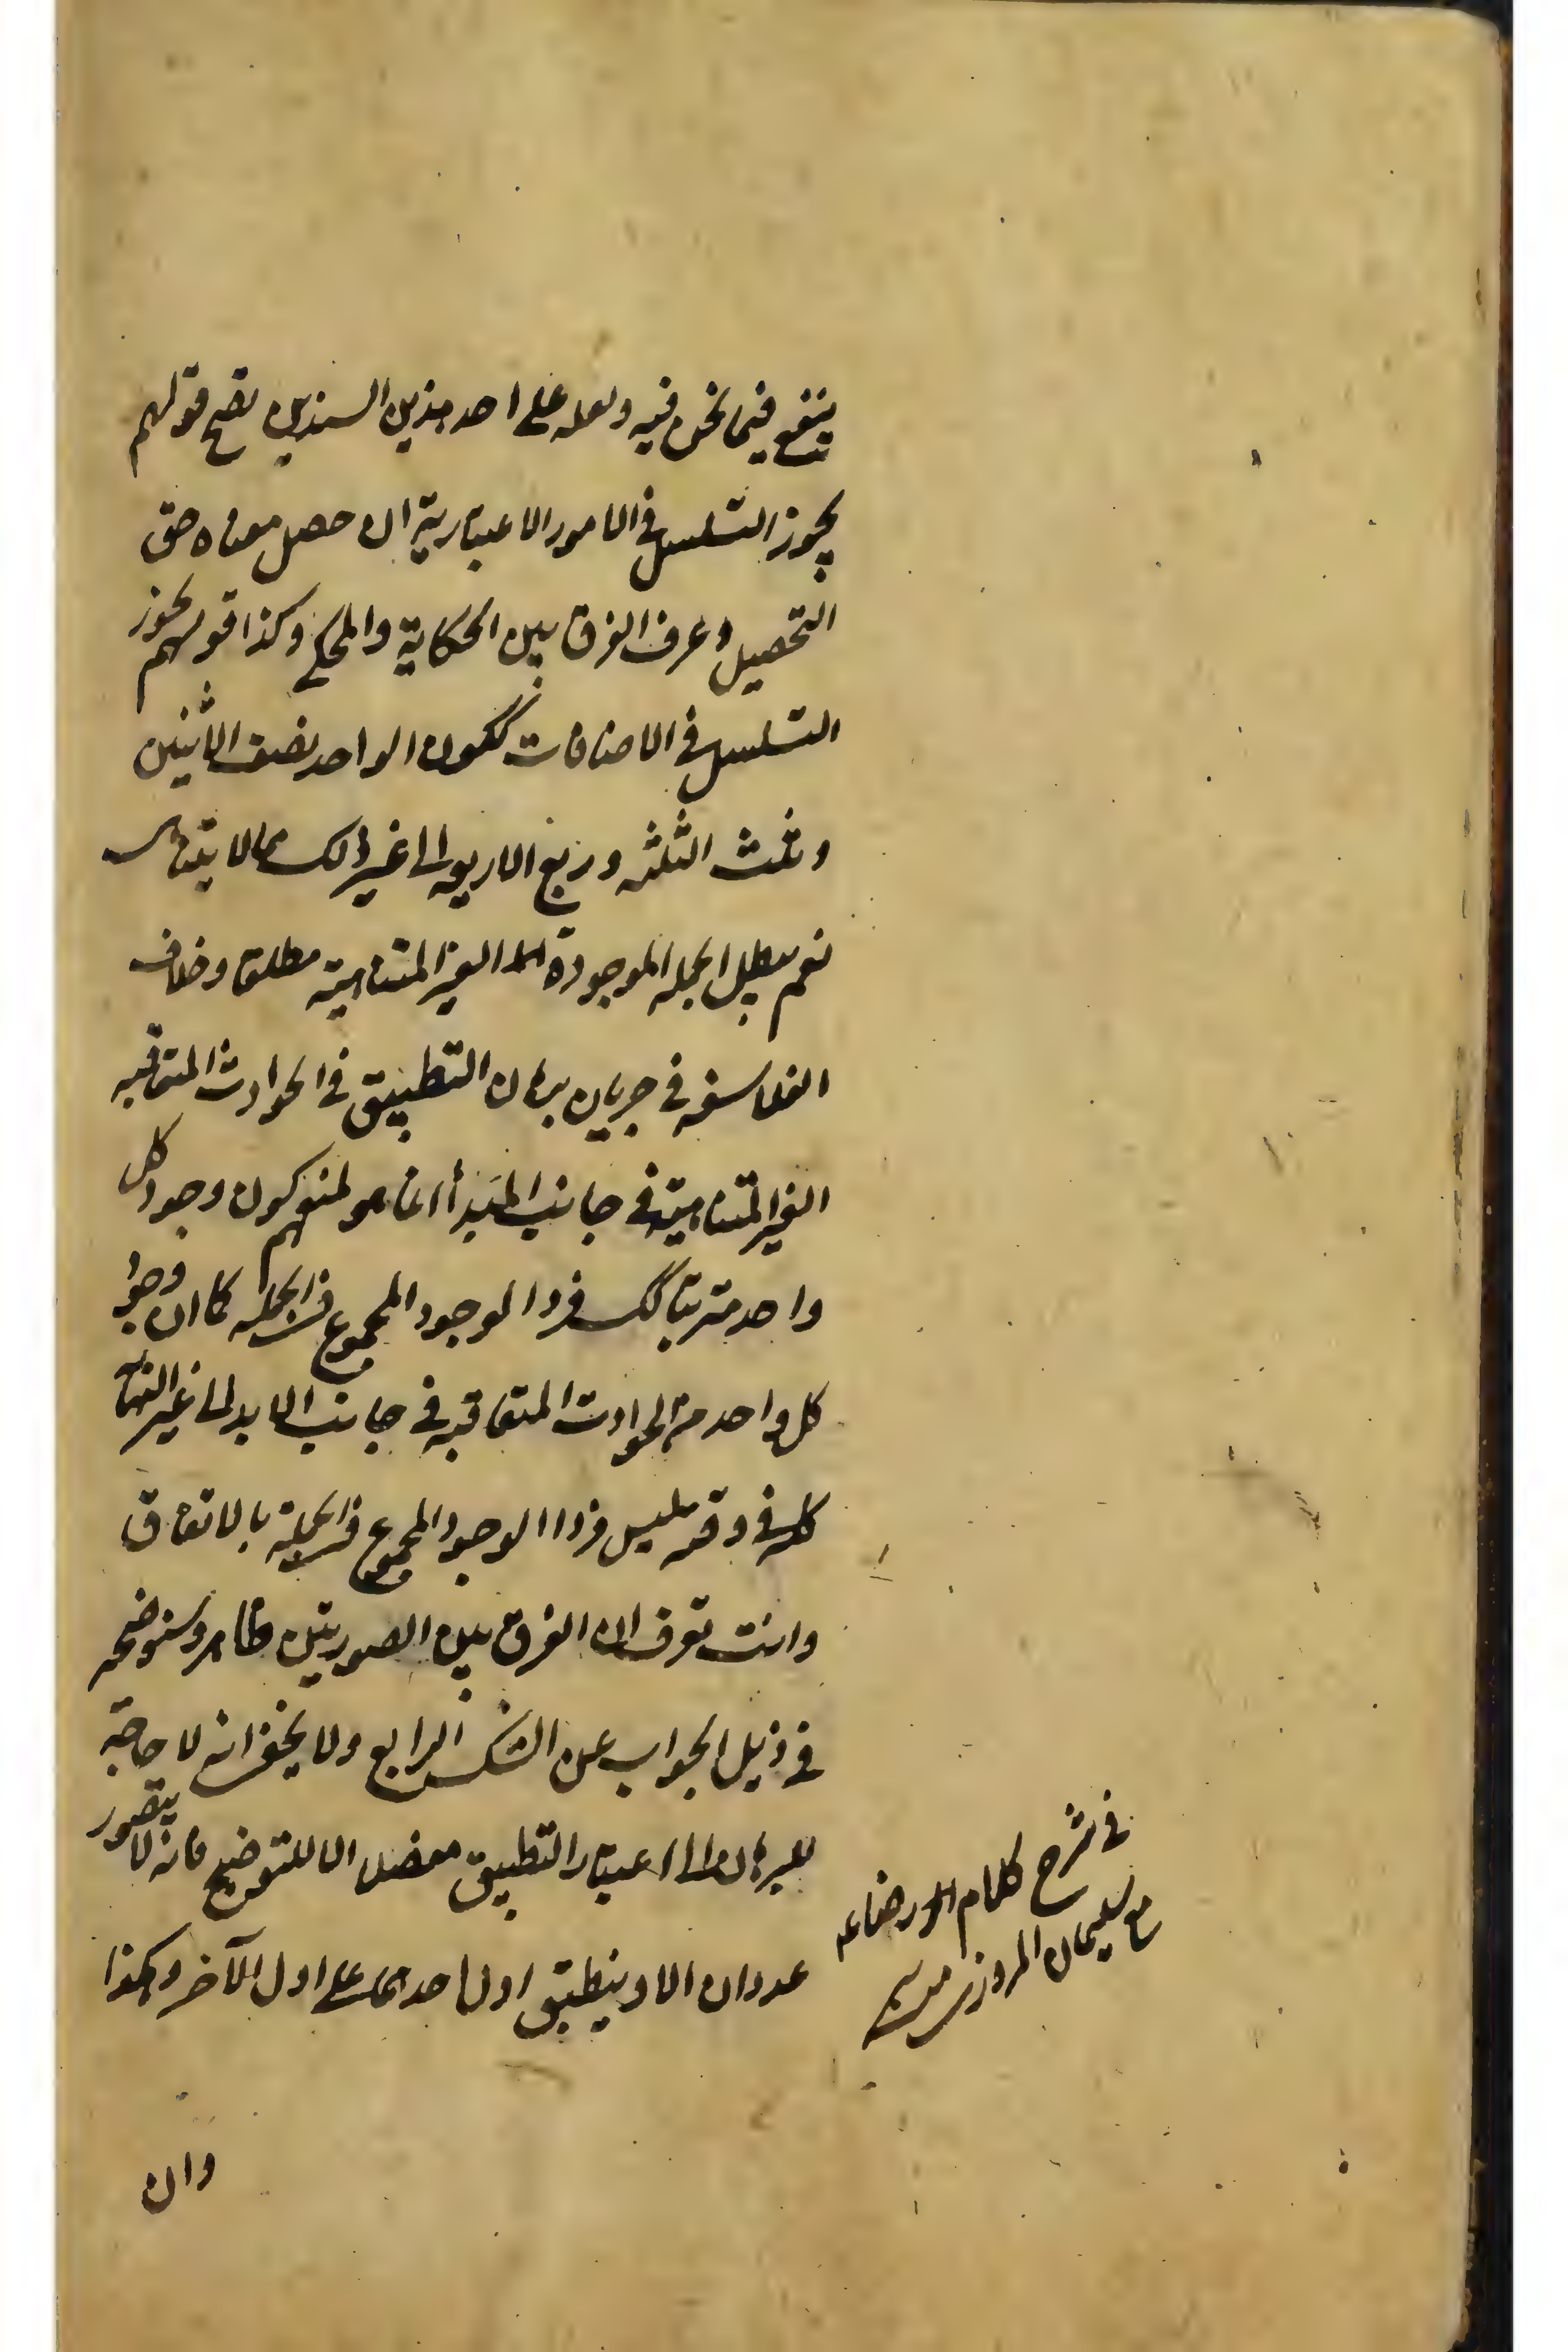 ينفع فيما نحن فيه ولعله على احد هذين السندين يصح قولهم
يجوز التسلسل في الامور الاعتبارية ان حصل معناه حق
التحصيل وعرف الفرق بين الحكاية والمحكي وكذا قولهم يجوز
التسلسل في الاضافات ككون الواحد نصف الاثنين
وثلث الثلثه وربع الاربعه الى غير ذلك مما لا يتناهى
نعم يبطل الجمله الموجودة الغير المتناهية مطلقا وخلاف
الفلاسفه في جريان برهان التطبيق في الحوادث المتعاقبه
الغير المتناهية في جانب المبدأ انما هو لمنعهم كون وجود كل
واحد مترتبا كك فردا لوجود المجموع في الجمله كما ان وجود
كل واحد من الحوادث المتعاقبه في جانب الابد الى غير النهاية
كله في وقته ليس فردا لوجود المجموع في الجملة بالاتفاق
وانت تعرف ان الفرق بين الصورتين ظاهر وسنوضحه
في ذيل الجواب عن الشك الرابع ولا يخفى انه لا حاجة
للبرهان الى اعتبار التطبيق مفصلا الا للتوضيح فانه لا يتصور
عددان الا وينطبق اول احدهما على اول الآخر وهكذا
في شرح كلام الرضا ع
مع سليمان المروزي
وان